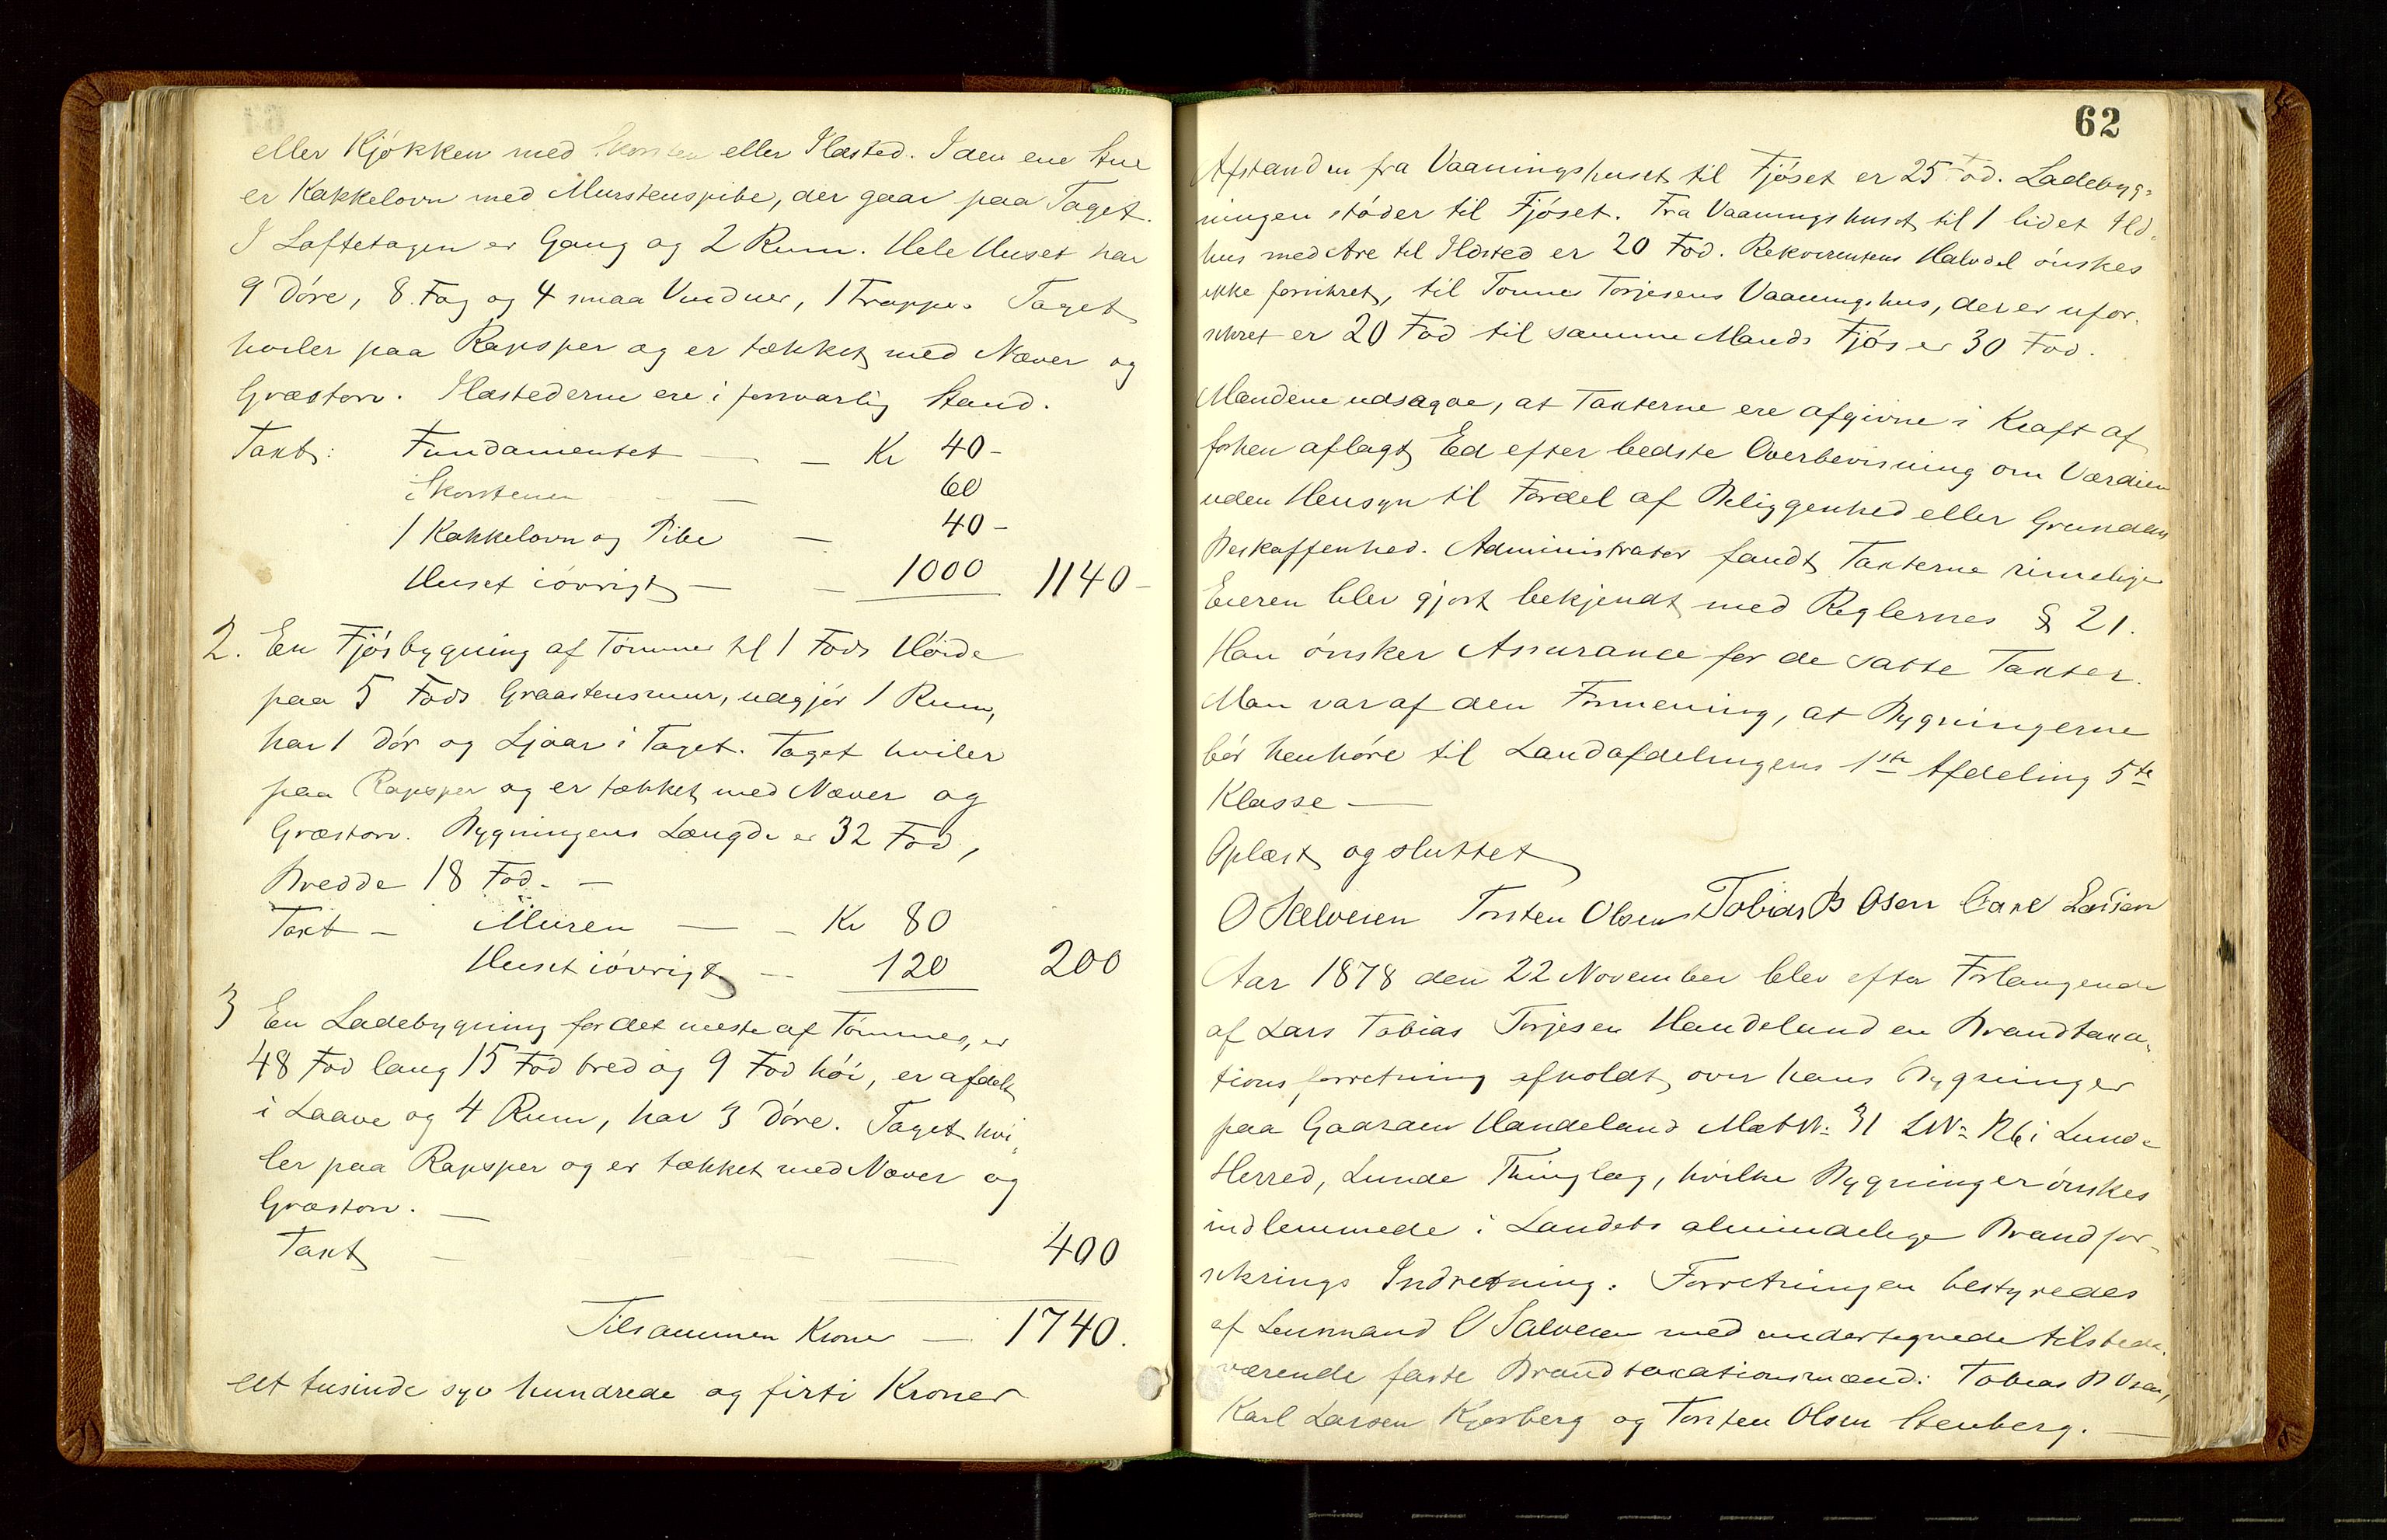 eller Kjøkken med Skorsten eller Ildsted. I den ene Stue
er Kakkelovn med Murstenspibe, der gaar paa Taget.
I Loftetagen er Gang og 2 Rum. Hele Huset har
9 Døre, 8 Fag og 4 smaa Vinduer, 1 Trappe. Taget
hviler paa Rapsper og er tækket med Næver og
Græstorv. Ildstederne ere i forsvarlig Stand.
Taxt: Fundamentet — — Kr 40-
Skorstenen — 60
1 Kakkelovn og Pibe — 40-
Huset iøvrigt — — 1000 1140-
2. En Fjøsbygning af Tømmer til 1 Fods Høide
paa 5 Fods Graastensmur, udgjør 1 Rum,
har 1 Dør og Ljaar i Taget. Taget hviler
paa Rapsper og er tækket med Næver og
Græstorv. Bygningens Længde er 32 Fod,
Bredde 18 Fod. —
Taxt — Muren — — Kr 80
Huset iøvrigt — 120 200
3 En Ladebygning for det meste af Tømmer, er
48 Fod lang 15 Fod bred og 9 Fod høi, er afdelt
i Laave og 4 Rum, har 3 Døre. Taget hvi-
ler paa Rapsper og er tækket med Næver og
Græstorv. —
Taxt — 400
Tilsammen Kroner — 1740.
et tusinde syv hundrede og firti Kroner
62
Afstanden fra Vaaningshuset til Fjøset er 25 Fod. Ladebyg-
ningen støder til Fjøset. Fra Vaaningshuset til 1 lidet Ild-
hus med Are til Ildsted er 20 Fod. Rekvirentens Halvdel ønskes
ikke forsikret, til Tønnes Torjesens Vaaningshus, der er ufor-
sikret er 20 Fod til samme Mands Fjøs er 30 Fod.
Mændene udsagde, at Taxterne ere afgivne i Kraft af
forhen aflagt Ed efter bedste Overbevisning om Værdien
uden Hensyn til Fordel af Beliggenhed eller Grundens
Beskaffenhed. Administrator fandt Taxterne rimelige
Eieren blev gjort bekjendt med Reglernes § 21.
Han ønsker Assurance for de satte Taxter.
Man var af den Formening, at Bygningerne
bør henhøre til Landafdelingens 1ste Afdeling 5te
Klasse —
Oplæst og sluttet
O Salvesen Torsten Olsen Tobias B Osen Carl Larsen
Aar 1878 den 22 November blev efter Forlangende
af Lars Tobias Torjesen Handeland en Brandtaxa-
tionsforretning afholdt over hans Bygninger
paa Gaarden Handeland Mat N: 31 LN: 126 i Lunde
Herred, Lunde Thinglag, hvilke Bygninger ønskes
indlemmede i Landets almindelige Brandfor-
sikrings Indretning. Forretningen bestyredes
af Lensmand O Salvesen med undertegnede tilstede-
værende faste Brandtaxationsmænd: Tobias B Osen,
Karl Larsen Kjosberg og Torsten Olsen Stenberg. —